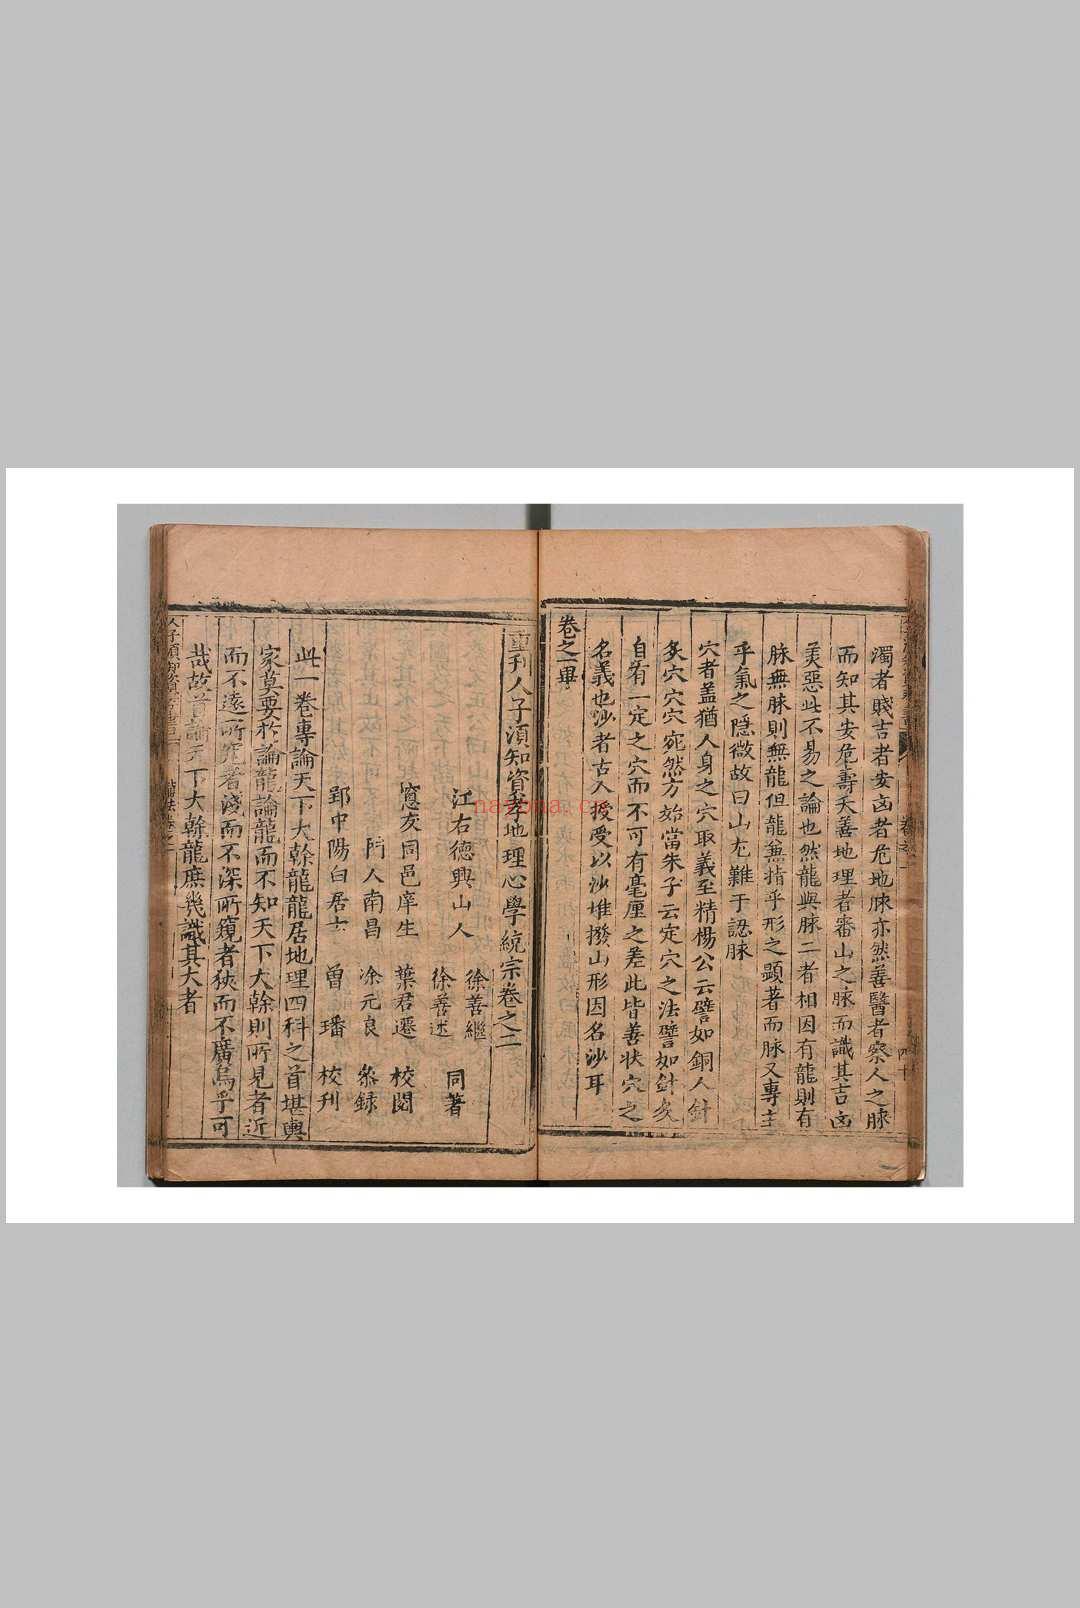 濁者賤吉者安凶者危地脉亦然善醫者察人之脉
而知其安危壽夭善地理者審山之脉而識其吉凶
美惡此不易之論也然龍與脉二者相因有龍則有
脉無脉則無龍但龍兼指乎形之顯著而脉又專主
乎氣之隱微故曰山尤難于認脉
穴者蓋猶人身之穴取義至精楊公云譬如銅人針
灸穴穴穴宛然方始當朱子云定穴之法譬如針灸
自有一定之穴而不可有毫厘之差此皆善状穴之
名義也沙者古人授受以沙堆撥山形因名沙耳
卷之一畢
重刊人子須知資孝地理心學統宗卷之二
江右德興山人 徐善繼
徐善述 同著
窓友同邑庠生 葉君遷 校閱
門人南昌 涂元良 叅録
郢中陽白居士 曾璠 校刊
此一卷專論天下大幹龍龍居地理四科之首堪輿
家莫要於論龍論龍而不知天下大幹則所見者近
而不遠所究者淺而不深所窺者狹而不廣烏乎可
哉故首論天下大幹龍庶幾識其大者
nayona.cn